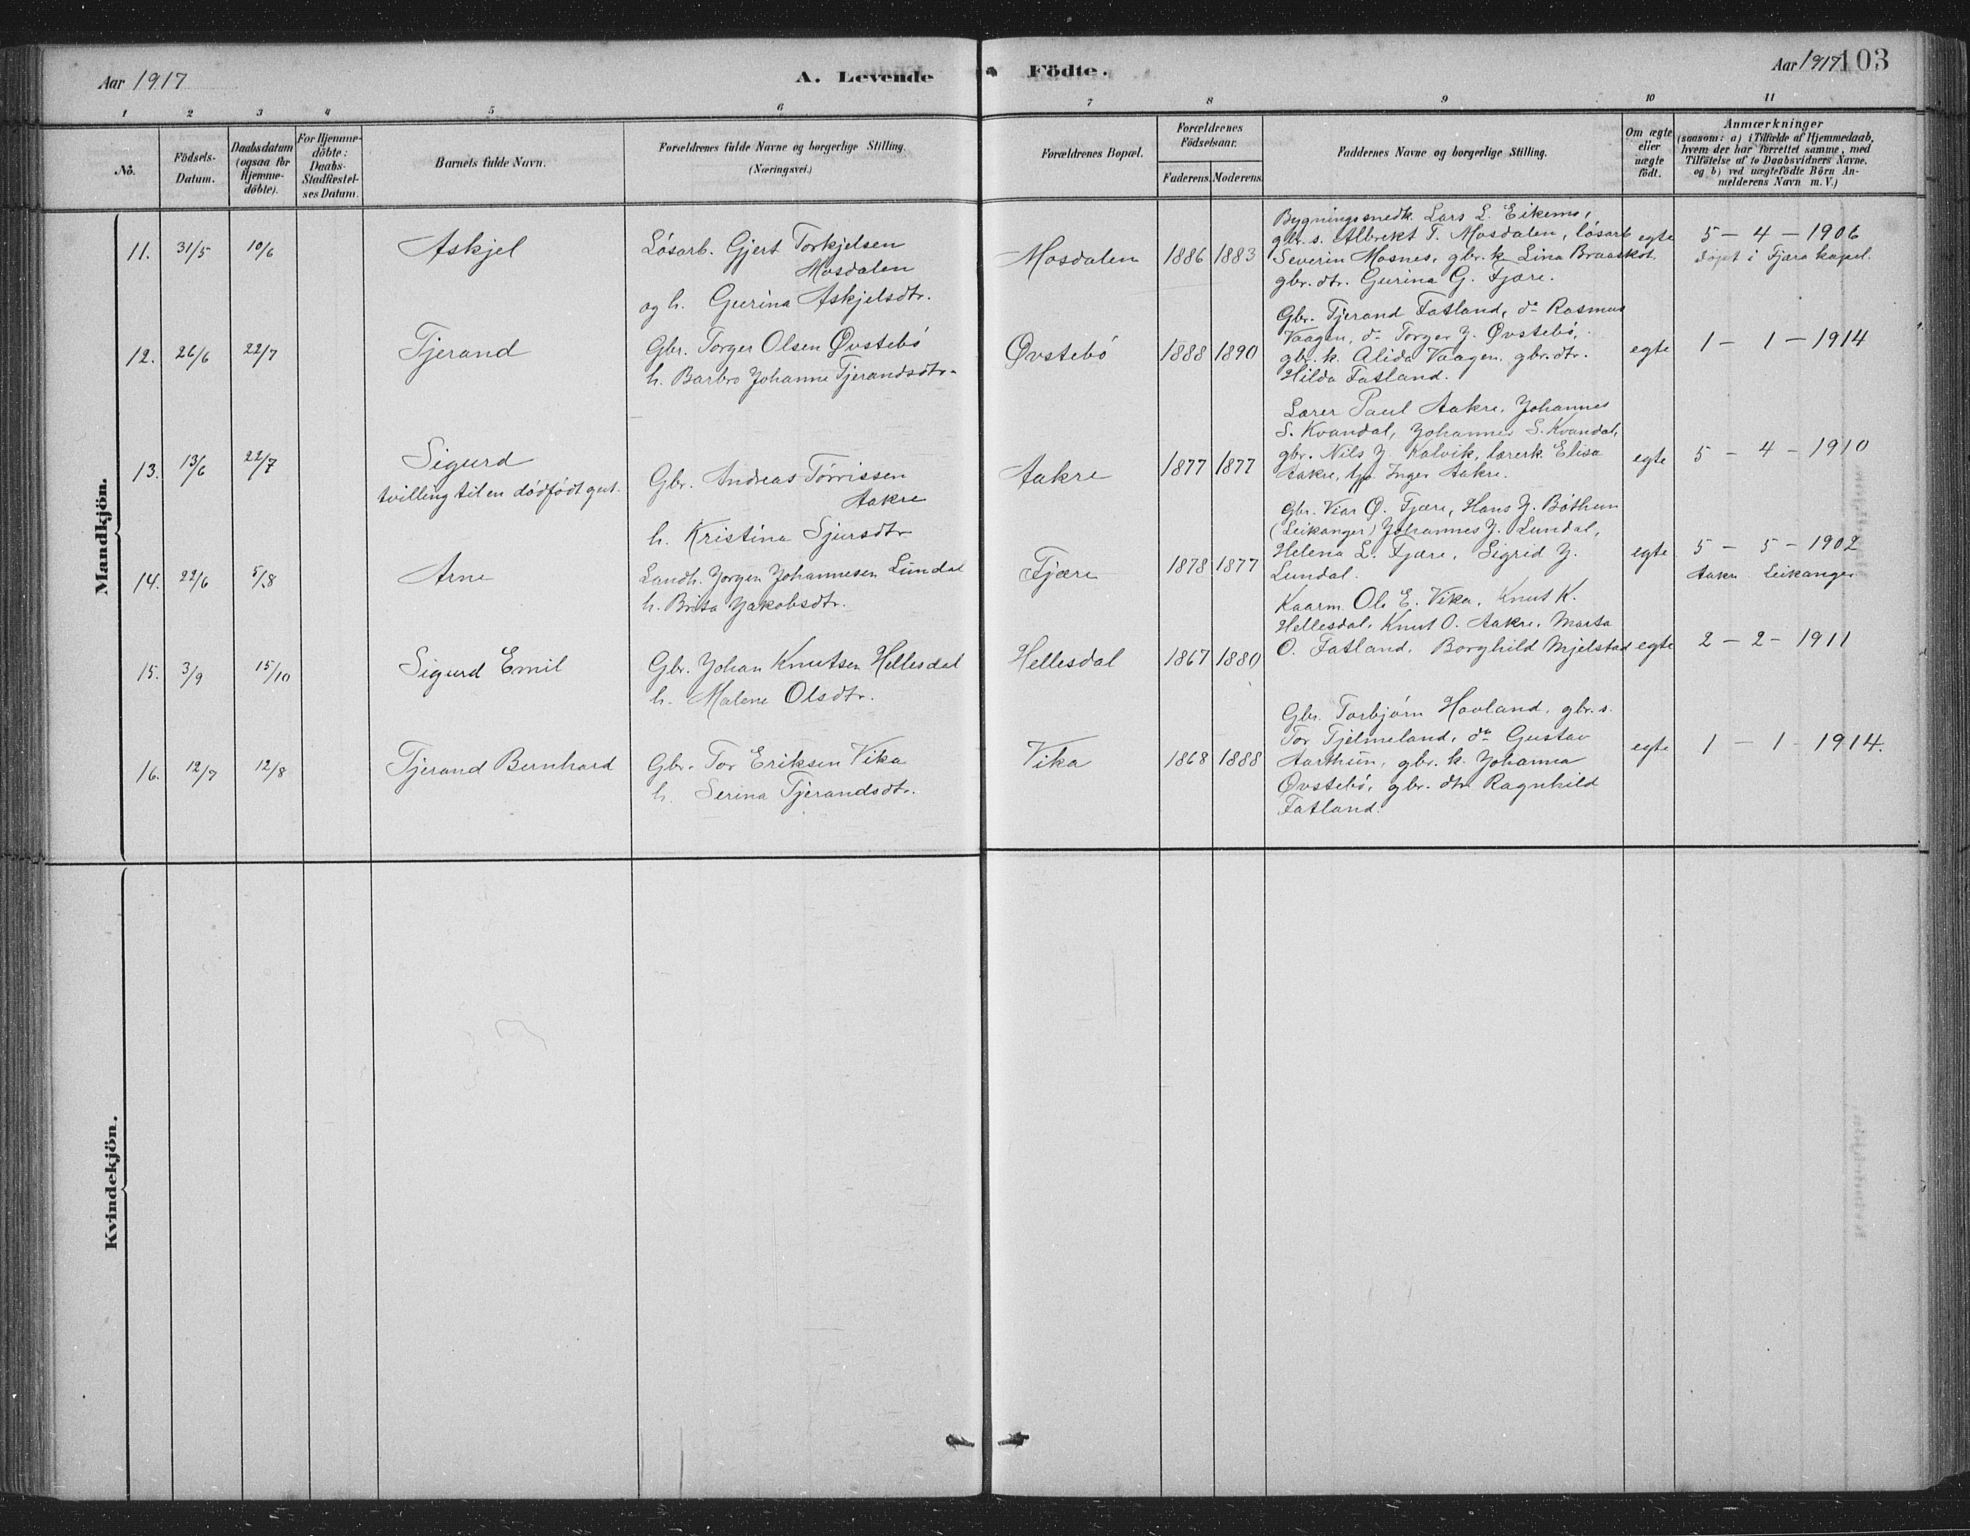 Aar 1917
A. Levende Födte.
Aar 1917
103
1 2 3 4 5 6 7 8 9 10 11
No.
Födsels-Datum.
Daabsdatum (ogsaa for Hjemme-döbte).
For Hjemme-döbte: Daabs-Stadfæstel-ses Datum.
Barnets fulde Navn.
Forældrenes fulde Navne og borgerlige Stilling. (Næringsvei.)
Forældrenes Bopæl.
Forældrenes Födselsaar.
Faderens. Moderens.
Faddernes Navne og borgerlige Stilling.
Om ægte eller uægte födt.
Anmærkninger
(saasom: a) i Tilfælde af Hjemmedaab, hvem der har forrettet samme, med Tilföielse af to Daabsvidners Navne, og b) ved uægtefödte Börn An-melderens Navn m. V.)
Mandkjön.
11. 31/5 10/6 Askjel
Løsarb. Gjert Torkjelsen
Mosdalen
og h. Gurina Askjelsdtr.
Mosdalen 1886 1883
Bygningssnedk. Lars L. Eikemo,
gbr. s. Albrekt T. Mosdalen, løsarb
Severin Mosnes, gbr. k. Lina Braaskot
gbr. dtr. Gurina G. Fjære.
egte
5 - 4 - 1906
døpt i Fjæra kapel.
12. 26/6 22/7 Tjerand
Gbr. Torger Olsen Øvstebø
h. Barbro Johanne Tjerandsdtr.
Øvstebø 1888 1890
Gbr. Tjerand Fatland, do Rasmus
Vaagen, do Torger J. Øvstebø,
gbr. k. Alida Vaagen, gbr. dtr.
Hilda Fatland.
egte
1 - 1 - 1914
13. 13/6 22/7 Sigurd
tvilling til en dødfødt gut.
Gbr. Andreas Tørrissen
Aakre
h. Kristina Sjursdtr
Aakre 1877 1877
Lærer Paul Aakre, Johannes
S. Kvandal, Johannes S. Kvandal,
gbr. Nils J. Kalvik, lærerk. Elisa
Aakre, Inger Aakre.
egte
5 - 4 - 1910
14. 22/6 5/8 Arne
Landh. Jørgen Johannesen Lundal
h. Brita Jakobsdtr.
Fjære 1878 1877
Gbr. Viar Ø. Fjære, Hans J. Bøthun
(Leikanger) Johannes J. Lundal,
Helena L. Fjære, Sigrid J.
Lundal.
egte
5 - 5 - 1902
Aakr. Leikanger
15. 3/9 15/10 Sigurd Emil
Gbr. Johan Knutsen Hellesdal
h. Malene Olsdtr.
Hellesdal 1867 1880
Kaarm. Ole E. Vika, Knut K.
Hellesdal, Knut O. Aakre, Marta
O. Fatland, Borghild Mjelstad
egte
2 - 2 - 1911
16. 12/7 12/8 Tjerand Bernhard
Gbr. Tor Eriksen Vika
h. Serina Tjerandsdtr.
Vika 1868 1888
Gbr. Torbjørn Havland, gbr. s.
Tor Tjelmeland, do Gustav
Aarthun, gbr. k. Johanna
Øvstebø, gbr. dtr. Ragnhild
Fatland.
egte
1 - 1 - 1914.
Kvindekjön.